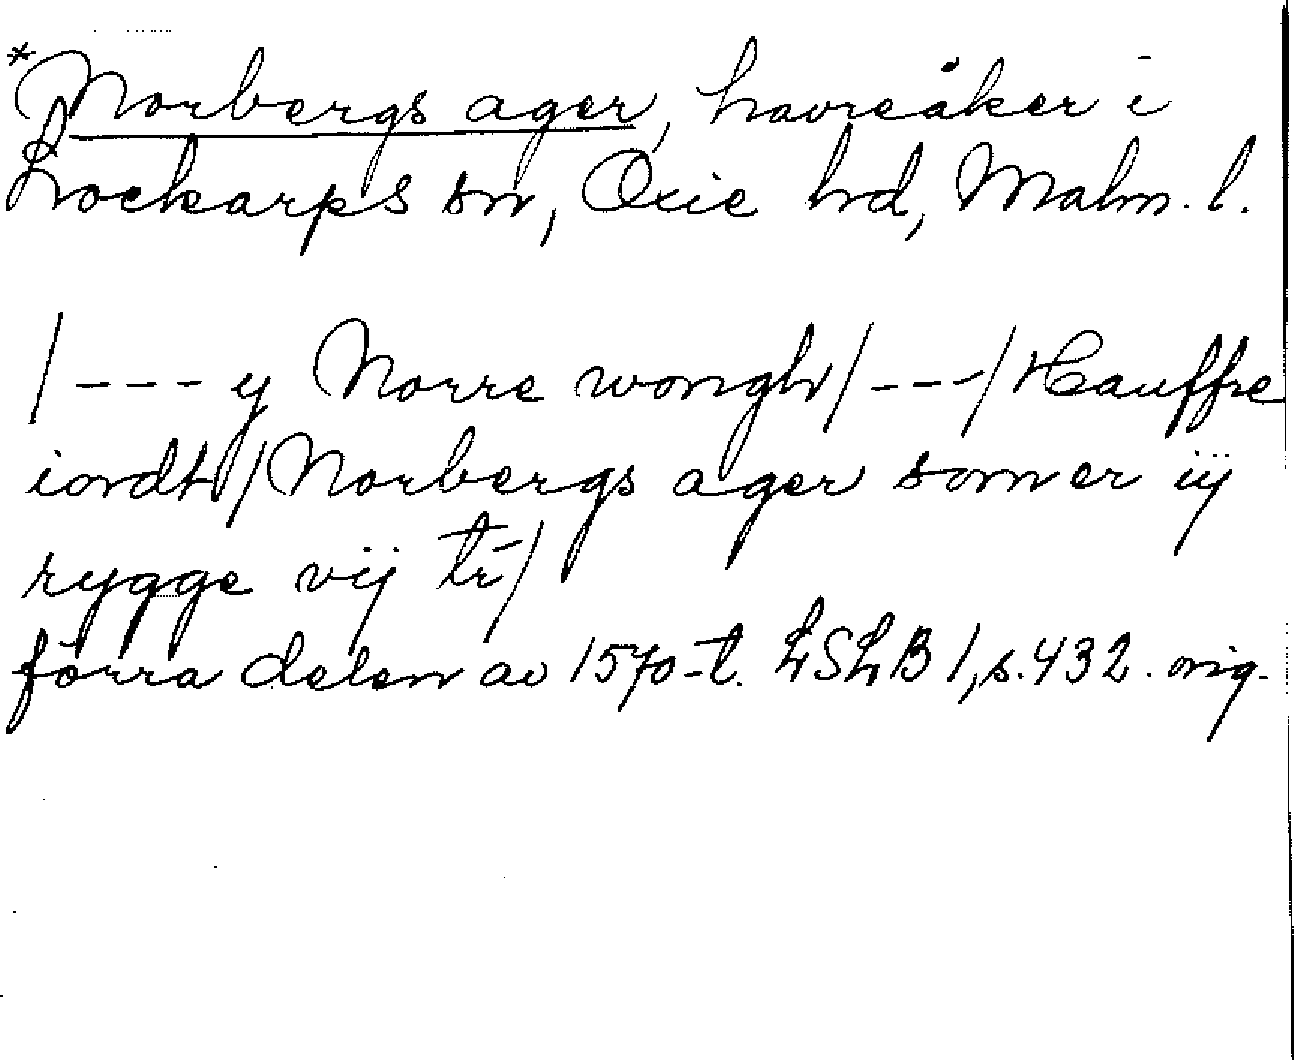 *Norbergs ager, havreåker i
Lockarps sn, Oxie hd, Malm. l.
/---y Norre wongh/---/Hauffre
iordt/Norbergs ager som er iij
rygge vij tr/
förra delen av 1570-t. LSLB 1, s. 432. orig.